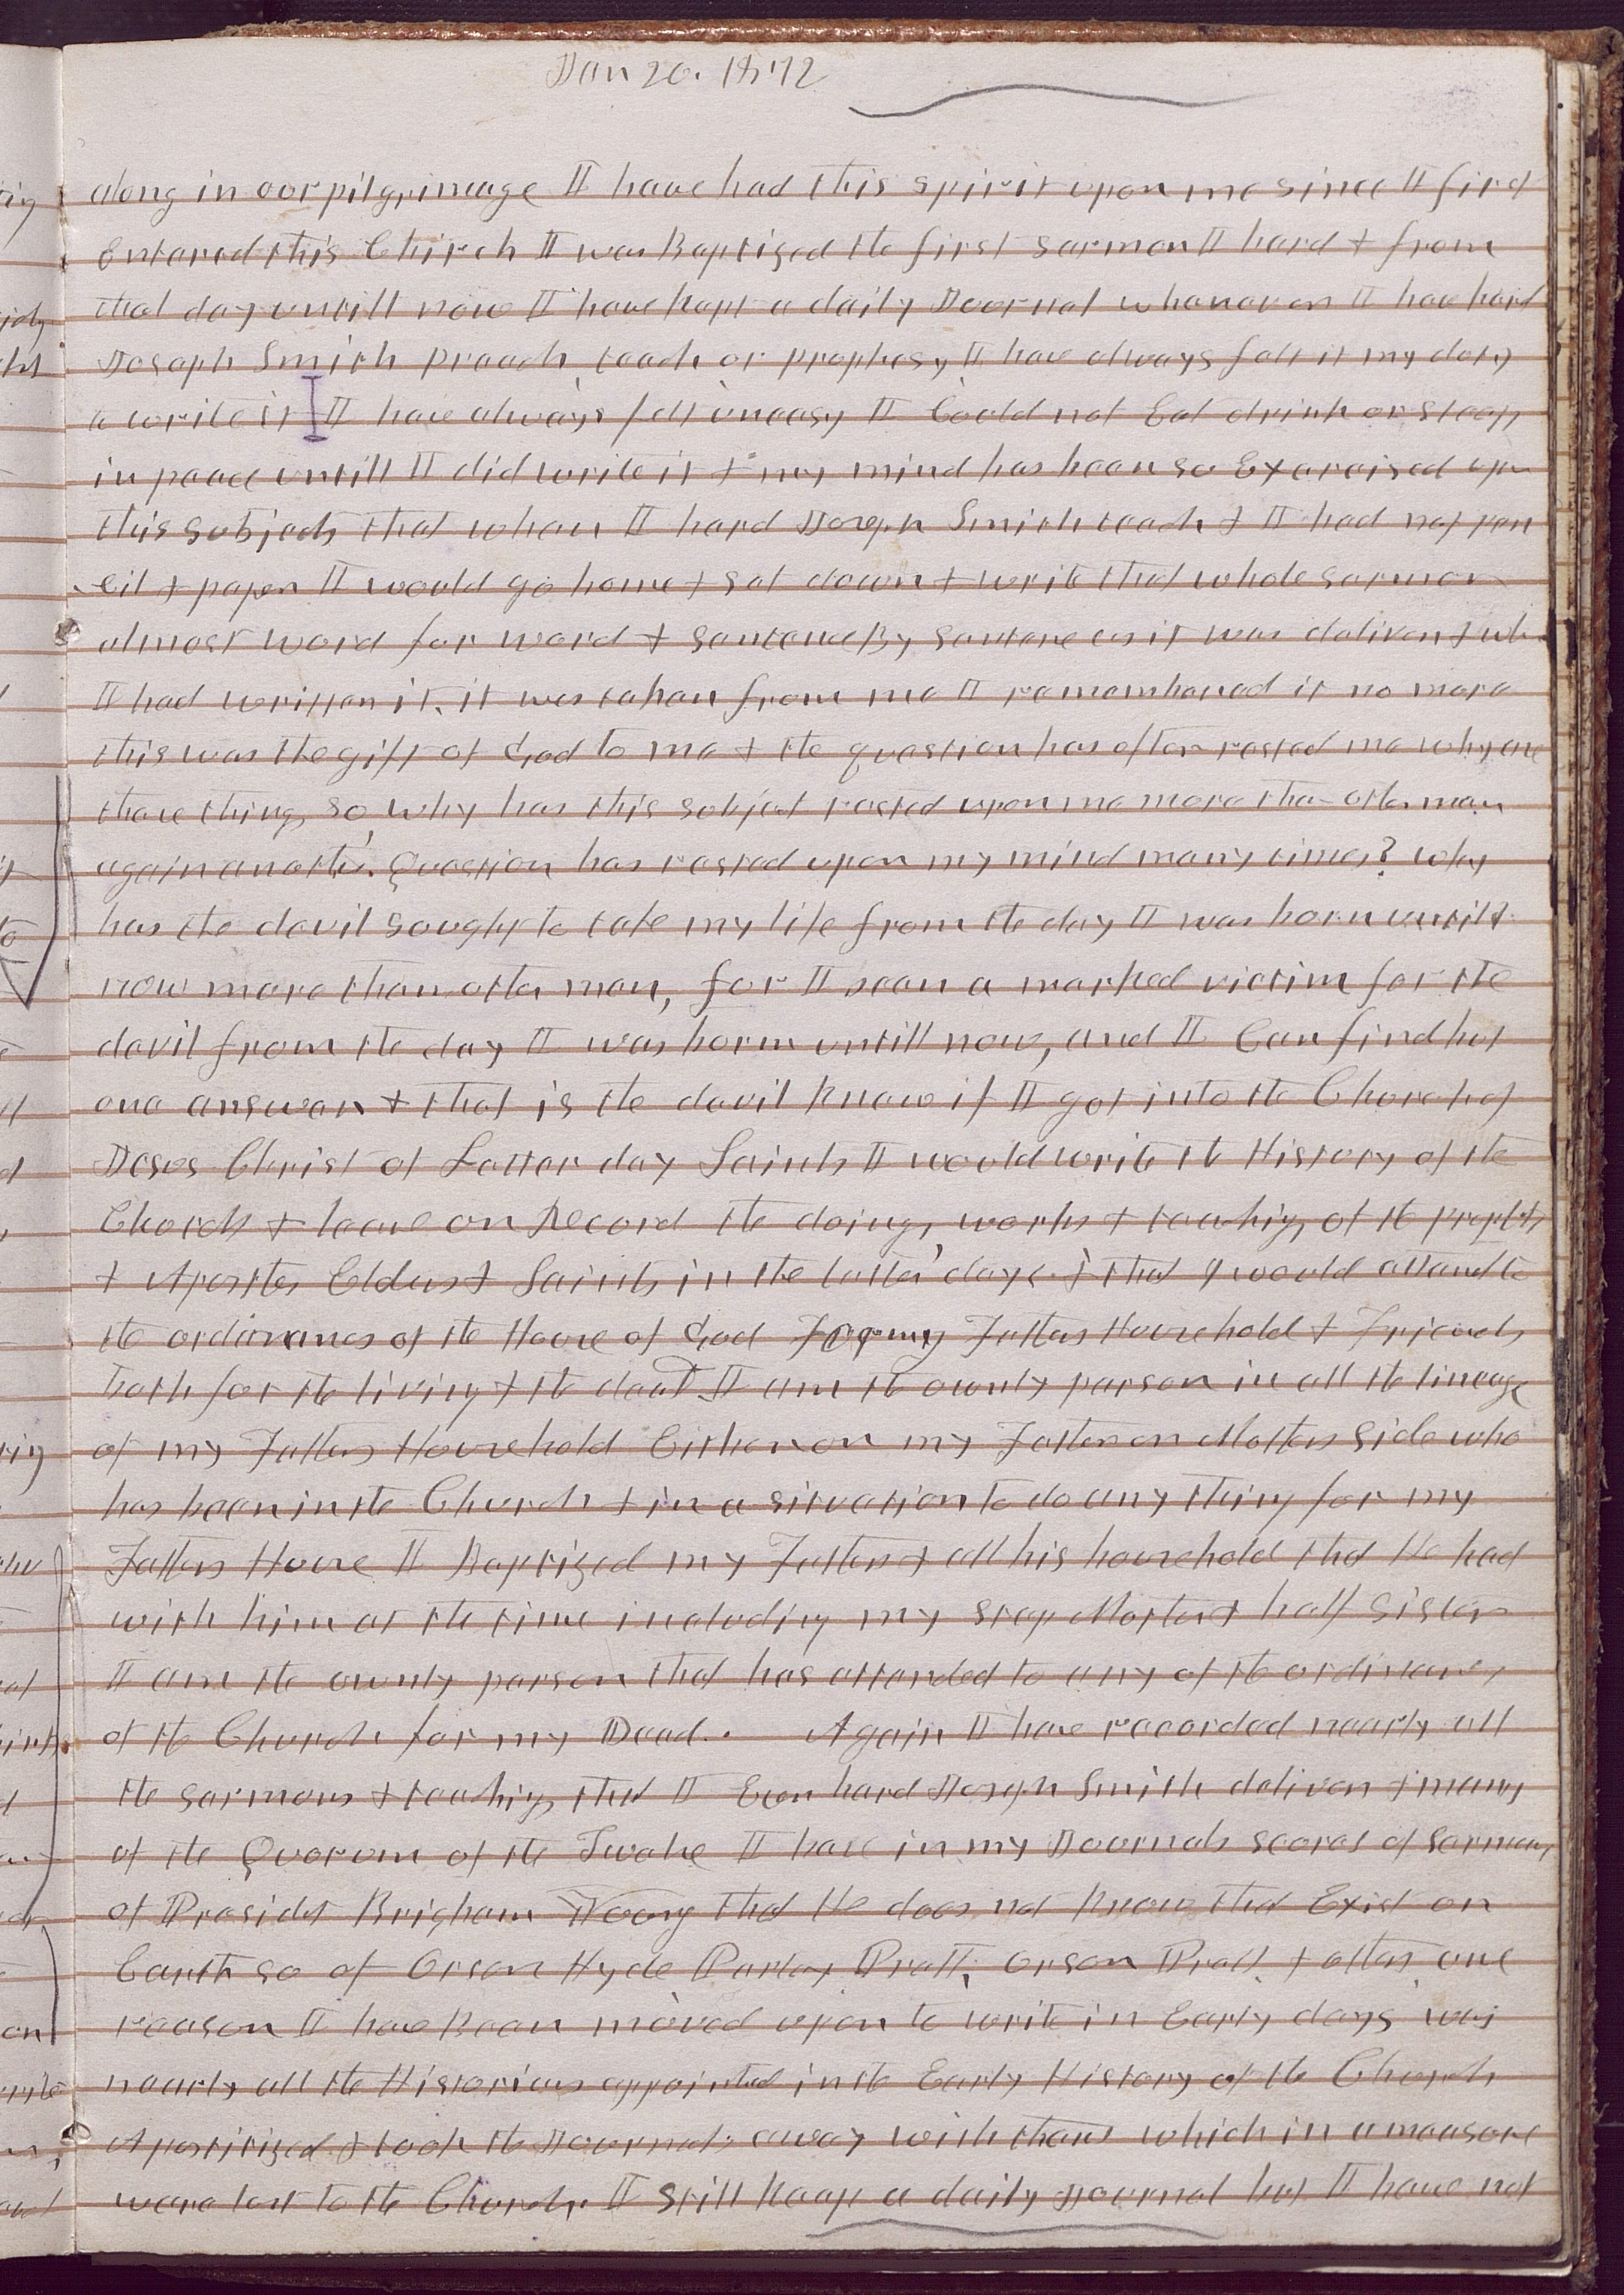 Jan 20. 1872
along in our pilgrimage I have had this spirit upon me since I first
Entered this Chirch I was Baptized the first sermon I herd & from
that day untill now I have kept a daily Journal whenever I have herd
Joseph Smith preach teach or prophesy I have always felt it my duty
to write it I have always felt uneasy I Could not Eat drink or sleep
in peace untill I did write it & my mind has been so Exercised upon
this subject that when I herd Joseph Smith teach & I had not pen
-cil & paper I would go home & set down & write that whole sermon
almost word for word & sentence By sentence as it was deliverd & when
I had written it, it was taken from me I rememberd it no more
this was the gift of God to me & the question has often rested me why are
these things so, why has this subject rested upon me more than other men
again another Question has rested upon my mind many times? why
has the devil sought to take my life from the day I was born untill
now more than other men, for I seem a marked victim for the
devil from the day I was born untill now, and I Can find but
one answer & that is the devil knew if I got into the Church of
Jesus Christ of Latter day Saints I would write the History of the
Church & leave on Record the doings, works & teachings of the prophets
& Apostles Elders & Saints in the latter days. & that I would attend to
the ordinances of the House of God For my Fathers Household & Friends
both for the living & the dead I am the ownly person in all the lineage
of my Fathers Household Either on my Father or Mothers side who
has been in the Church & in a situation to do any thing for my
Fathers House I Baptized my Father & all his household that He had
with him at the time including my step Mother & half Sister
I am the ownly person that has attended to any of the ordinances
of the Church for my Dead. Again I have recorded nearly all
the sermons & teachings that I Ever herd Joseph Smith deliver & many
of the Quorum of the Twelve I have in my Journals scores of Sermons
of President Brigham Young that He does not know that Exist on
Earth so of Orson Hyde Parley Pratt, Orson Pratt & others one
reason I have Been moved upon to write in Early days was
nearly all the Historians appointed in the Early History of the Church
Apostitized & took the Journals away with them which in a measure
were lost to the Church I still keep a daily Journal but I have not